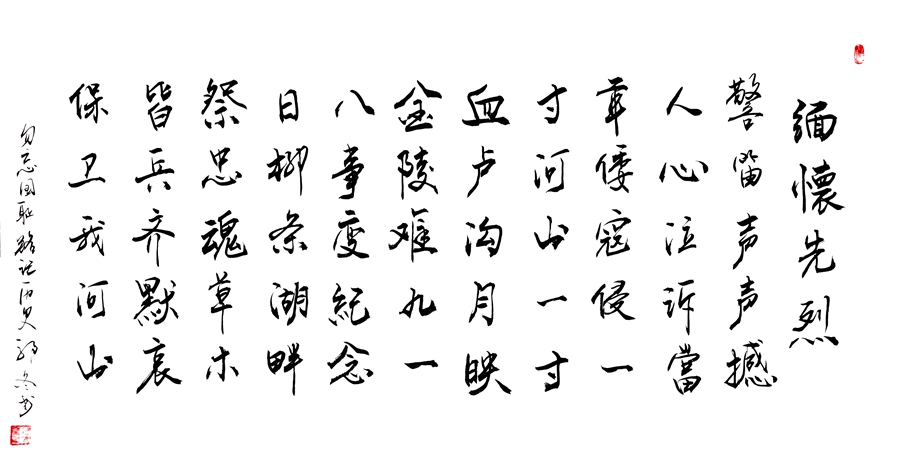 缅懷先烈
警笛声声撼
人心泣诉當
年倭寇侵一
寸河山一寸
血卢沟月映
金陵难九一
八事变纪念
日柳条湖畔
祭忠魂草木
皆兵齐默哀
保卫我河山
勿忘国耻铭记历史